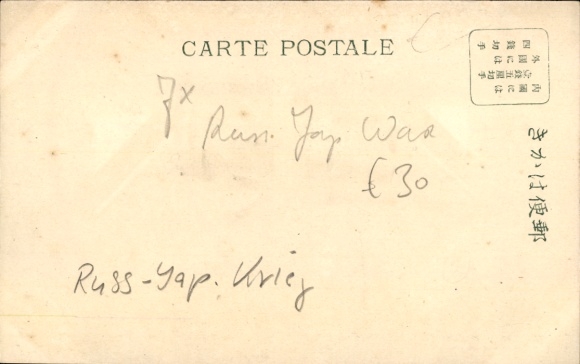 CARTE POSTALE
内國には
壹錢五厘切手
外國には
四錢切手
郵便はかき
7x
Russ. Jap War
£30
Russ-Jap. Krieg